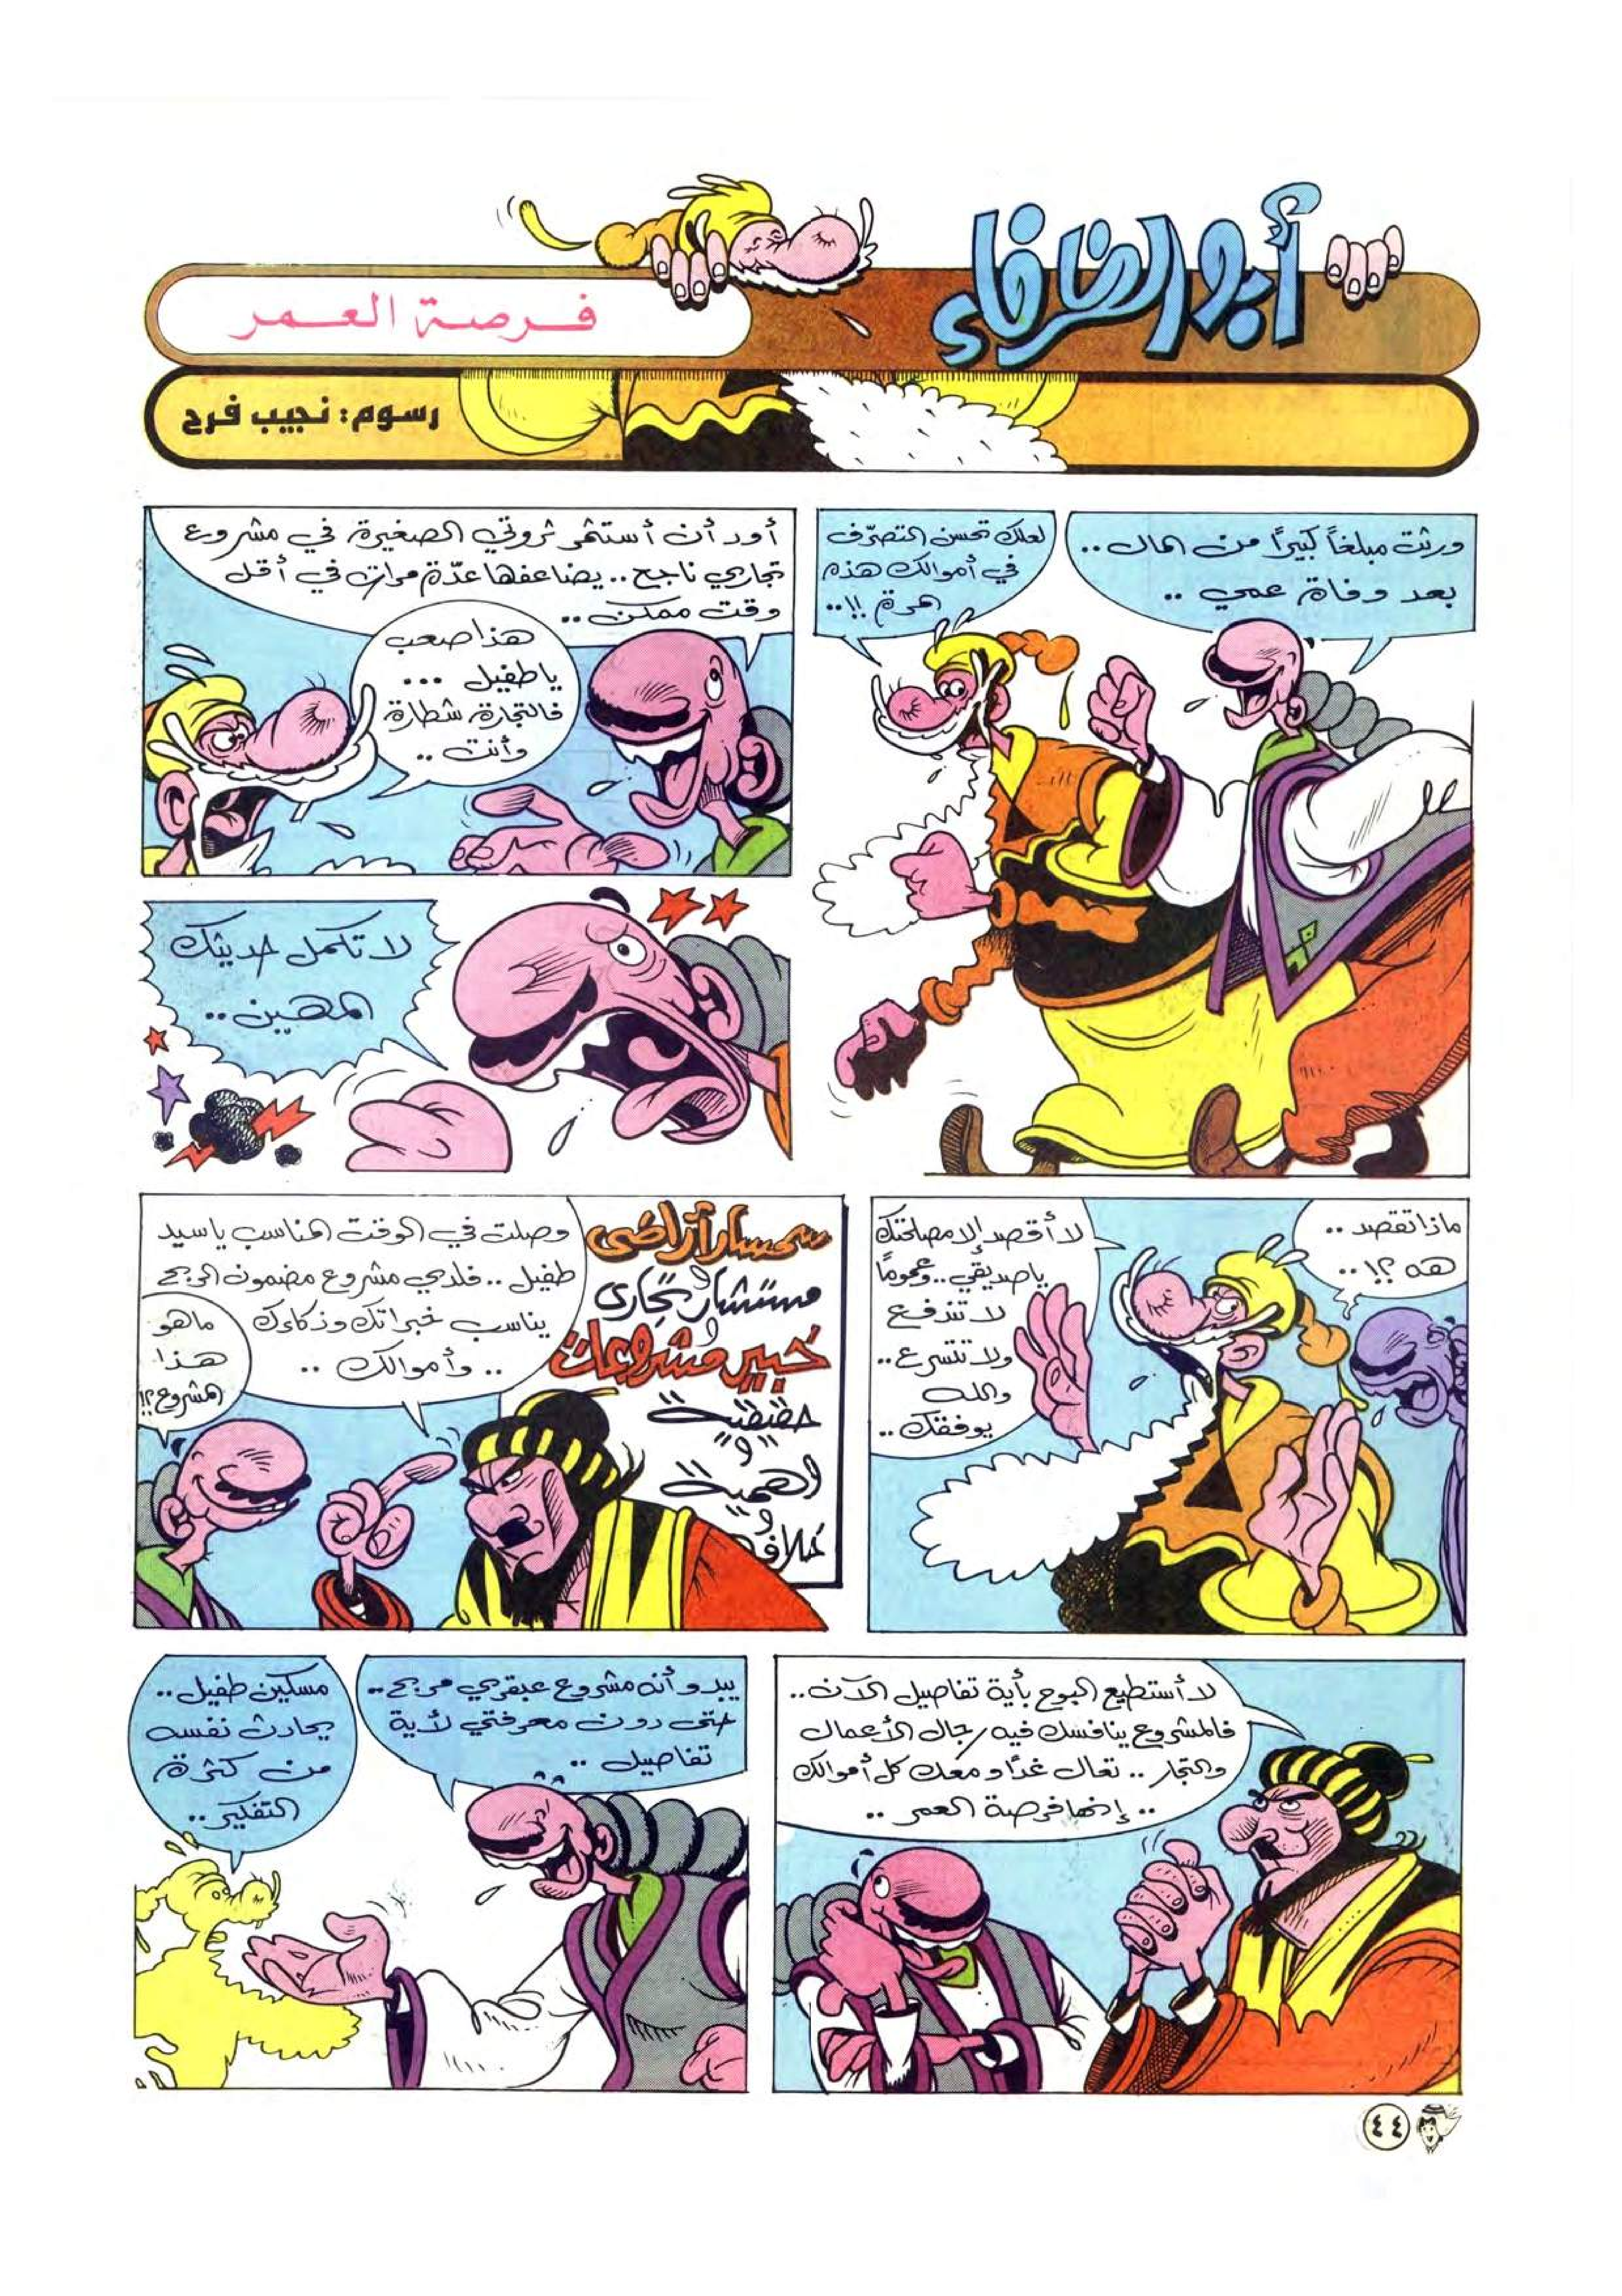 أبو الظرفاء
فرصة العمر
رسوم: نجيب فرح
ورثت مبلغاً كبيراً من المال ..
بعد وفاة عمي ..
لعلك تحسن التصرّف
في أموالك هذه
المرة !!..
أود أن أستثمر ثروتي الصغيرة في مشروع
تجاري ناجح .. يضاعفها عدّة مرات في أقل
وقت ممكن ..
هذا صعب
يا طفيل ...
فالتجارة شطارة
وأنت ..
لا تكمل حديثك
المهين ..
ماذا تقصد ..
هه ؟! ..
لا أقصد إلا مصلحتك
يا صديقي .. وعموماً
لا تندفع
ولا تتسرع ..
والله
يوفقك ..
سمسار أراضى
و
مستشار تجارى
و
خبير مشروعات
حقيقية
و
وهمية
و
خلافه
وصلت في الوقت المناسب يا سيد
طفيل .. فلدي مشروع مضمون الربح
يناسب خبراتك وذكاءك
.. وأموالك ..
ما هو
هذا
المشروع ؟!
لا أستطيع البوح بأية تفاصيل الآن ..
فالمشروع ينافسك فيه رجال الأعمال
والتجار .. تعال غداً ومعك كل أموالك
.. إنها فرصة العمر ..
يبدو أنه مشروع عبقري مربح ..
حتى دون معرفتي لأية
تفاصيل ..
مسكين طفيل ..
يحادث نفسه
من كثرة
التفكير ..
٤٤